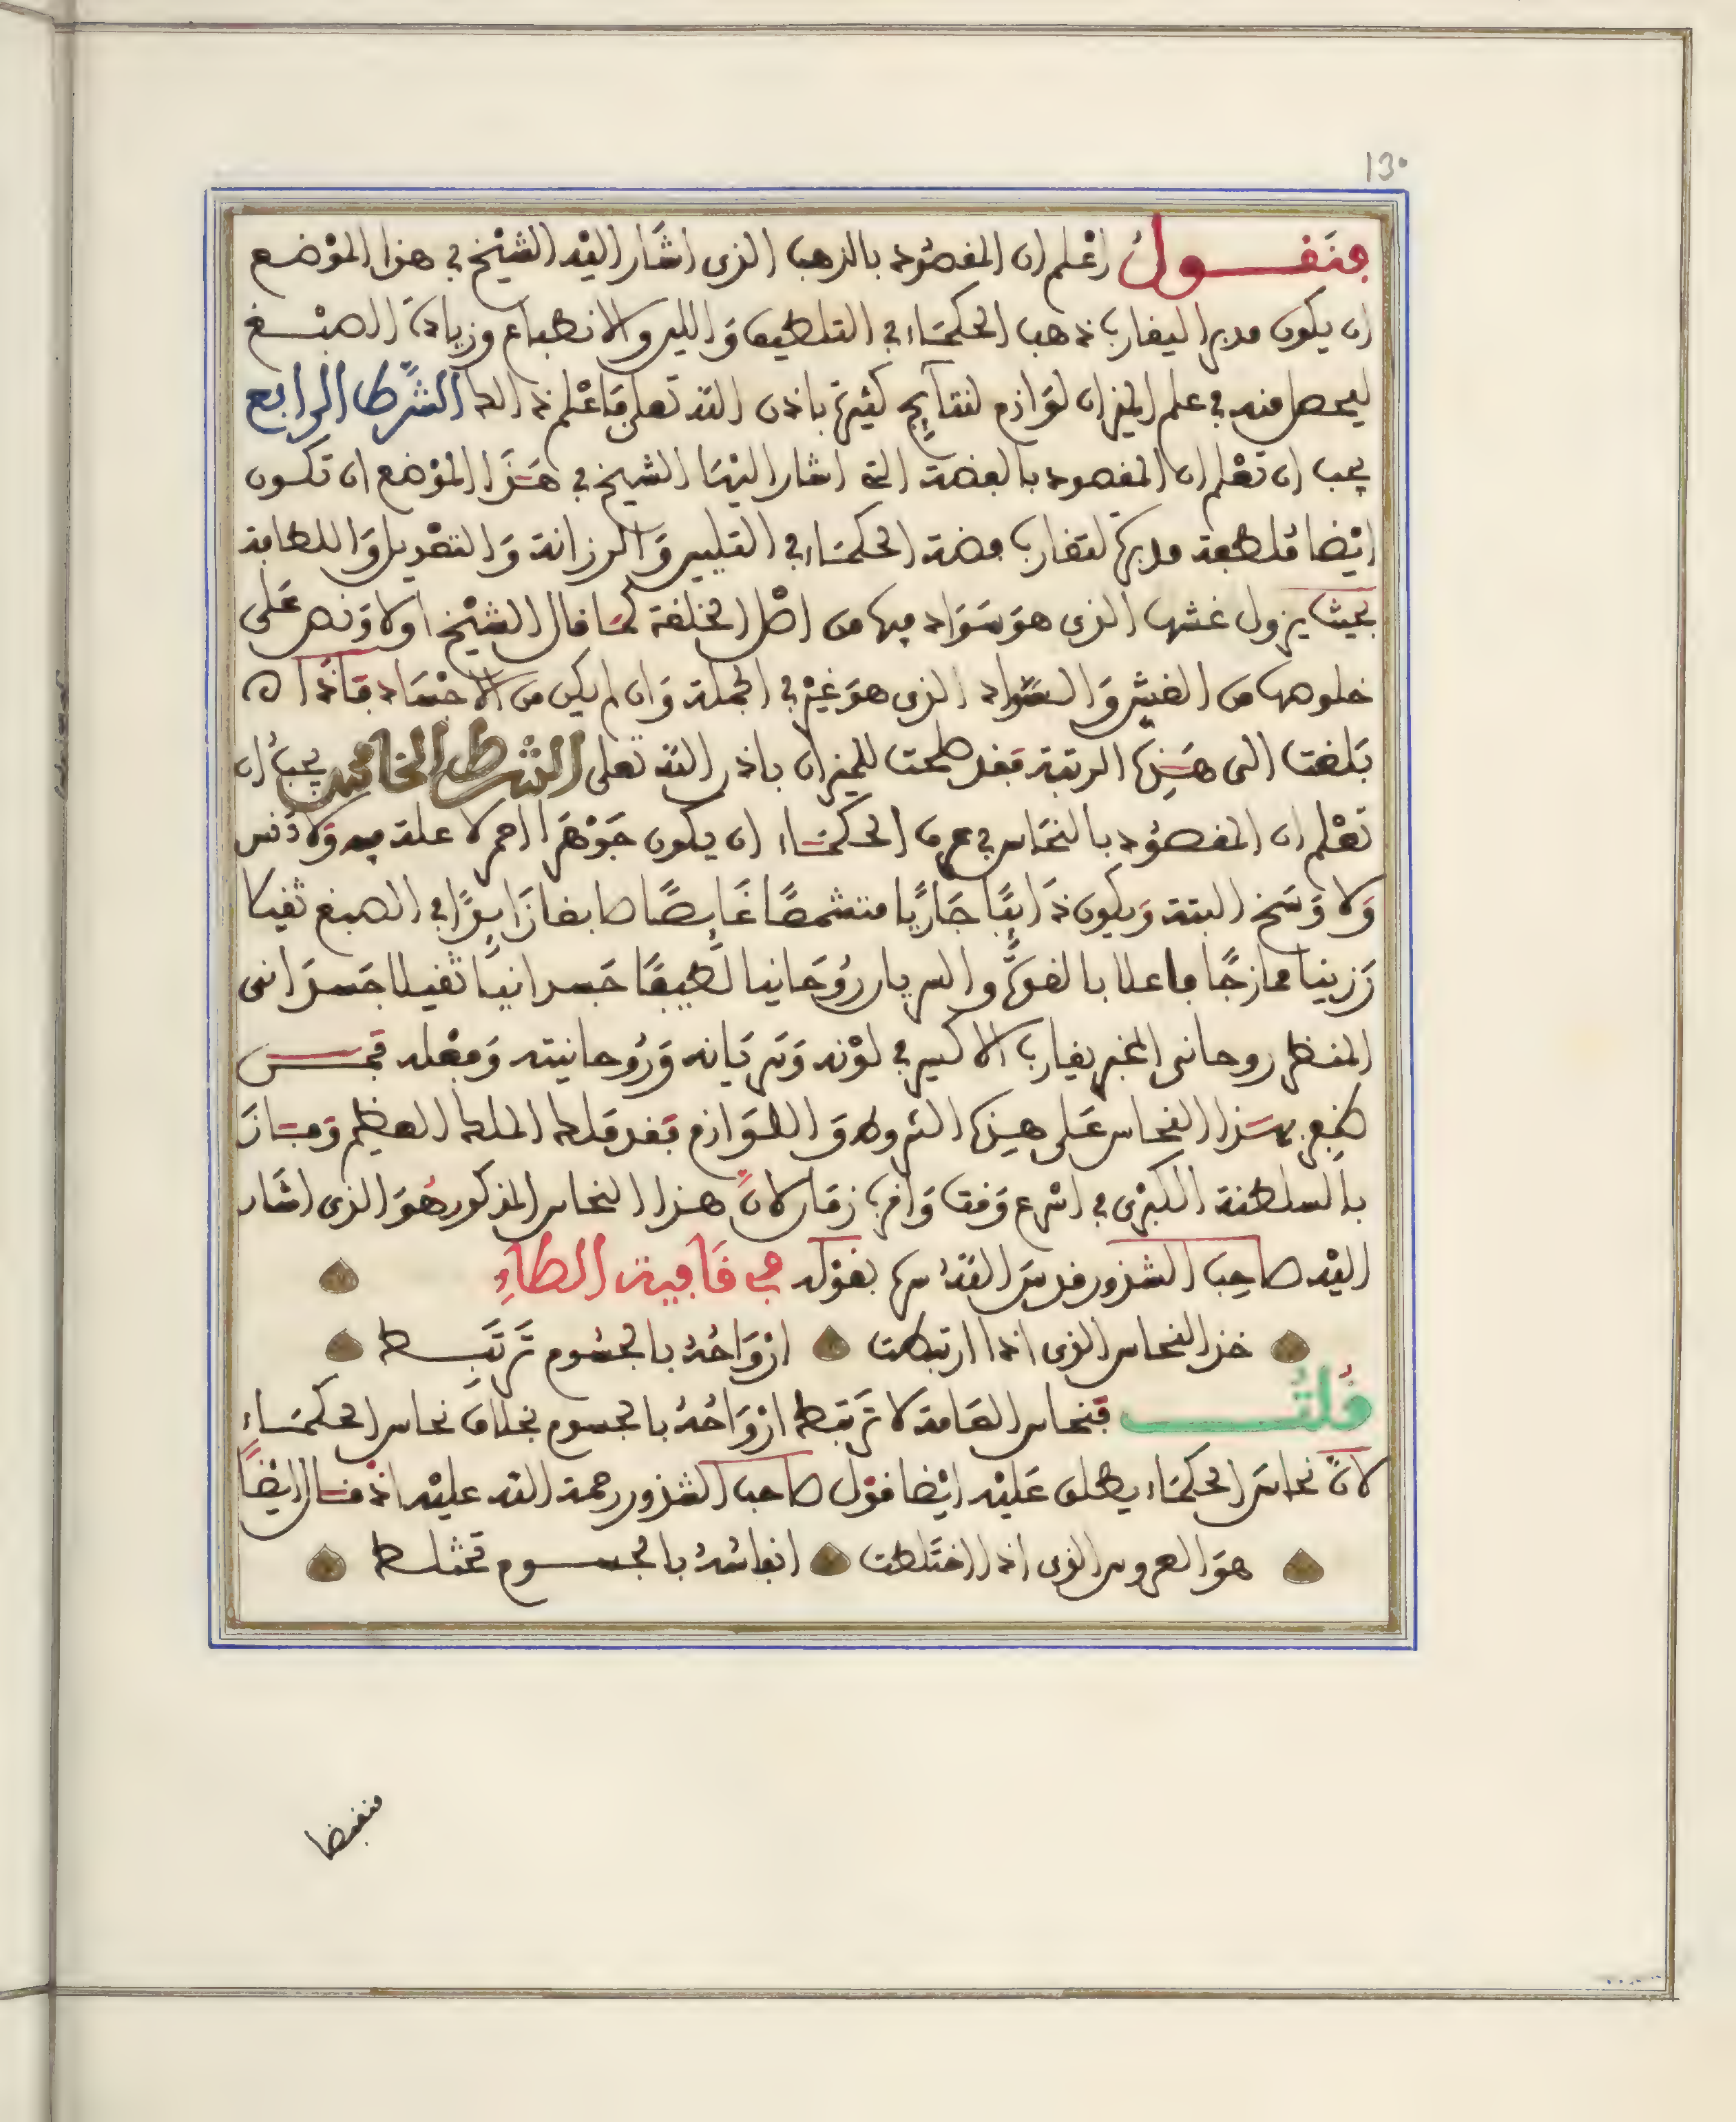 130
فنقول اعْلم ان المقصُود بالذهب الذى اشَار اليْه الشيْخ في هذا الموْضع
ان يكون مدبرا ليقارب ذهب الحكمَاء في التلطيف وَاللين والانطباع وزيادة الصبْغ
ليحصل منه في علم الميزان لوَازم لنتَايج كثيرة باذن الله تعلى فَاعْلم ذالك الشرْط الرابع
يجب ان تعْلم ان المقصود بالفضة التى اشار اليْهَا الشيخ في هَذَا الموْضع ان تكون
ايْضا ملطفة مدبرة لتقارب فضة الحكمَاء في التليين وَالرزانة وَالتعْديل وَاللطافة
بحيث يزول غشها الذى هوَ سَوَاد فيها من اصْل الخلقة كمَا قال الشيْخ اولا وَنص عَلى
خلوصها من الغش وَالسَّوَاد الذى هوَ غيْر في الجملة وَان لم يكن من الاجْسَاد فَاذَا
بَلغت الى هَذِه الرتبة فقد صلحت للميزان باذن الله تعلى الشرْط الخامس يجبُ ان
تعْلم ان المقصُود بالنحَاس في عرف الحكمَاء ان يكون جَوْهَرا احمر لا علة فيه وَلا دَنس
وَلا وَسَخ البتة وَيكون ذَايبًا جَاريًا متشمعًا غَايصًا صابغا زَايدًا في الصبغ ثقيلا
رَزينا ممازجًا فاعلا بالقوّة والسريان رُوحَانيا لطيفًا جَسدانيًا ثقيلا جَسدَانى
المنظر روحانى المخبر يقارب الاكسير في لوْنه وَسَريَانه وَرُوحانيته وَفعْله فمَن
ظفر بهَذا النحاس عَلى هذِه الشروط وَاللوَازم فقد مَلك الملك العظيم وَفَازَ
بالسلطنة الكبْرى في اسْرع وَقت وَاقرب زمَان لانّ هذا النحاس المذكور هُوَ الذى اشَار
اليْه صاحِب الشذور قدسَ اللهُ سره بقوْله في قَافية الطاءِ
خذ النحاس الذى اذا ارتبطت ازوَاحُهُ بالجُسُوم تَرتَبِط
قُلتُ فنحاس العَامة لا تَرتبط ارْوَاحُهُ بالجسوم بخلاف نحاس الحكمَاء
لانّ نحاسَ الحكمَاء يطلق عَليْه ايْضا قوْل صاحب الشذور رحمة الله عليْه اذ قَال ايْضًا
هوَ العروس الذى اذا اختَلطت انفاسُهُ بالجسوم تختلط